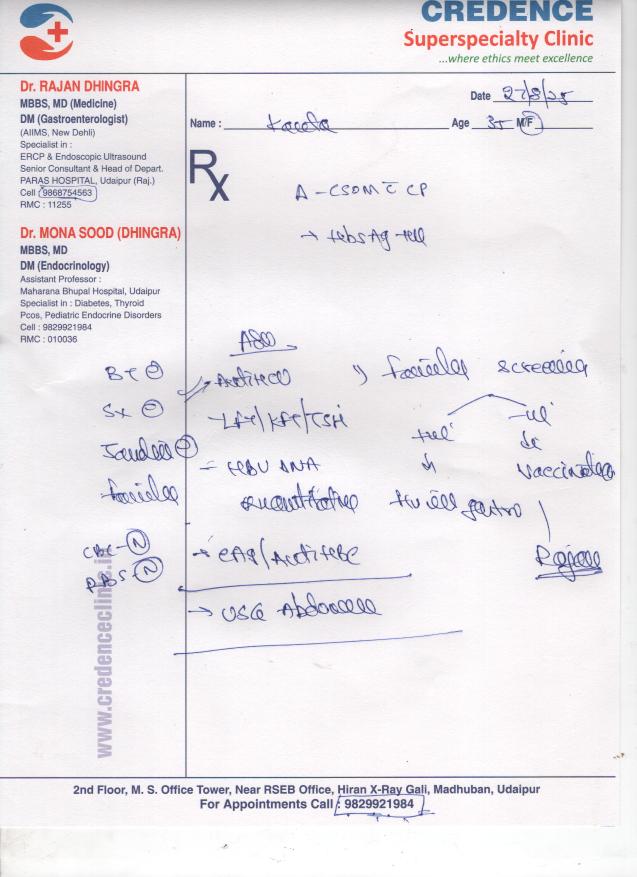 CREDENCE
Superspecialty Clinic
...where ethics meet excellence
Dr. RAJAN DHINGRA
MBBS, MD (Medicine)
DM (Gastroenterologist)
(AIIMS, New Dehli)
Specialist in :
ERCP & Endoscopic Ultrasound
Senior Consultant & Head of Depart.
PARAS HOSPITAL, Udaipur (Raj.)
Cell 9868754563
RMC : 11255
Dr. MONA SOOD (DHINGRA)
MBBS, MD
DM (Endocrinology)
Assistant Professor :
Maharana Bhupal Hospital, Udaipur
Specialist in : Diabetes, Thyroid
Pcos, Pediatric Endocrine Disorders
Cell : 9829921984
RMC : 010036
Date 27/8/25
Name :
Age 35 M/F
Rx
A - CSOM C CP
→ HbsAg +ve
Adv
BT ⊖
Sx ⊖
CBC - N
RBS - N
Anti HCV
LFT/KFT/TSH
= HBV DNA
Quantitative
→ EAg/Anti HBC
→ USG Abdomen
screening
+ve -ve
↓ ↓
gastro
www.credenceclinic.i
2nd Floor, M. S. Office Tower, Near RSEB Office, Hiran X-Ray Gali, Madhuban, Udaipur
For Appointments Call : 9829921984